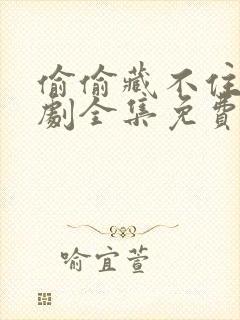 偷偷藏不住
劇全集免費
喻宜萱